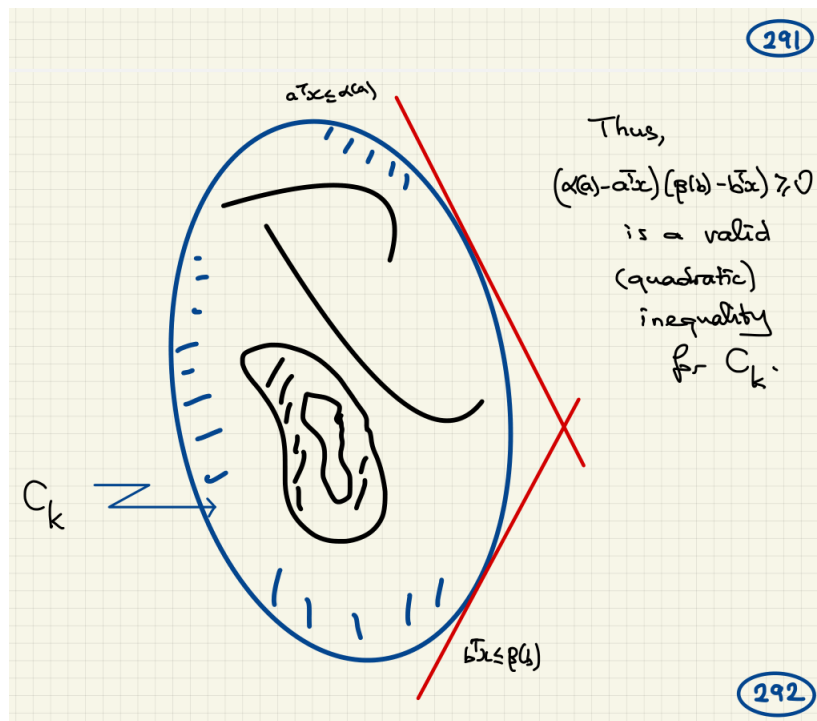 291
aᵀx ≤ α(a)
Thus,
(α(a)-aᵀx)(β(b)-bᵀx) ≥ 0
is a valid
(quadratic)
inequality
for Cₖ.
Cₖ
bᵀx ≤ β(b)
292